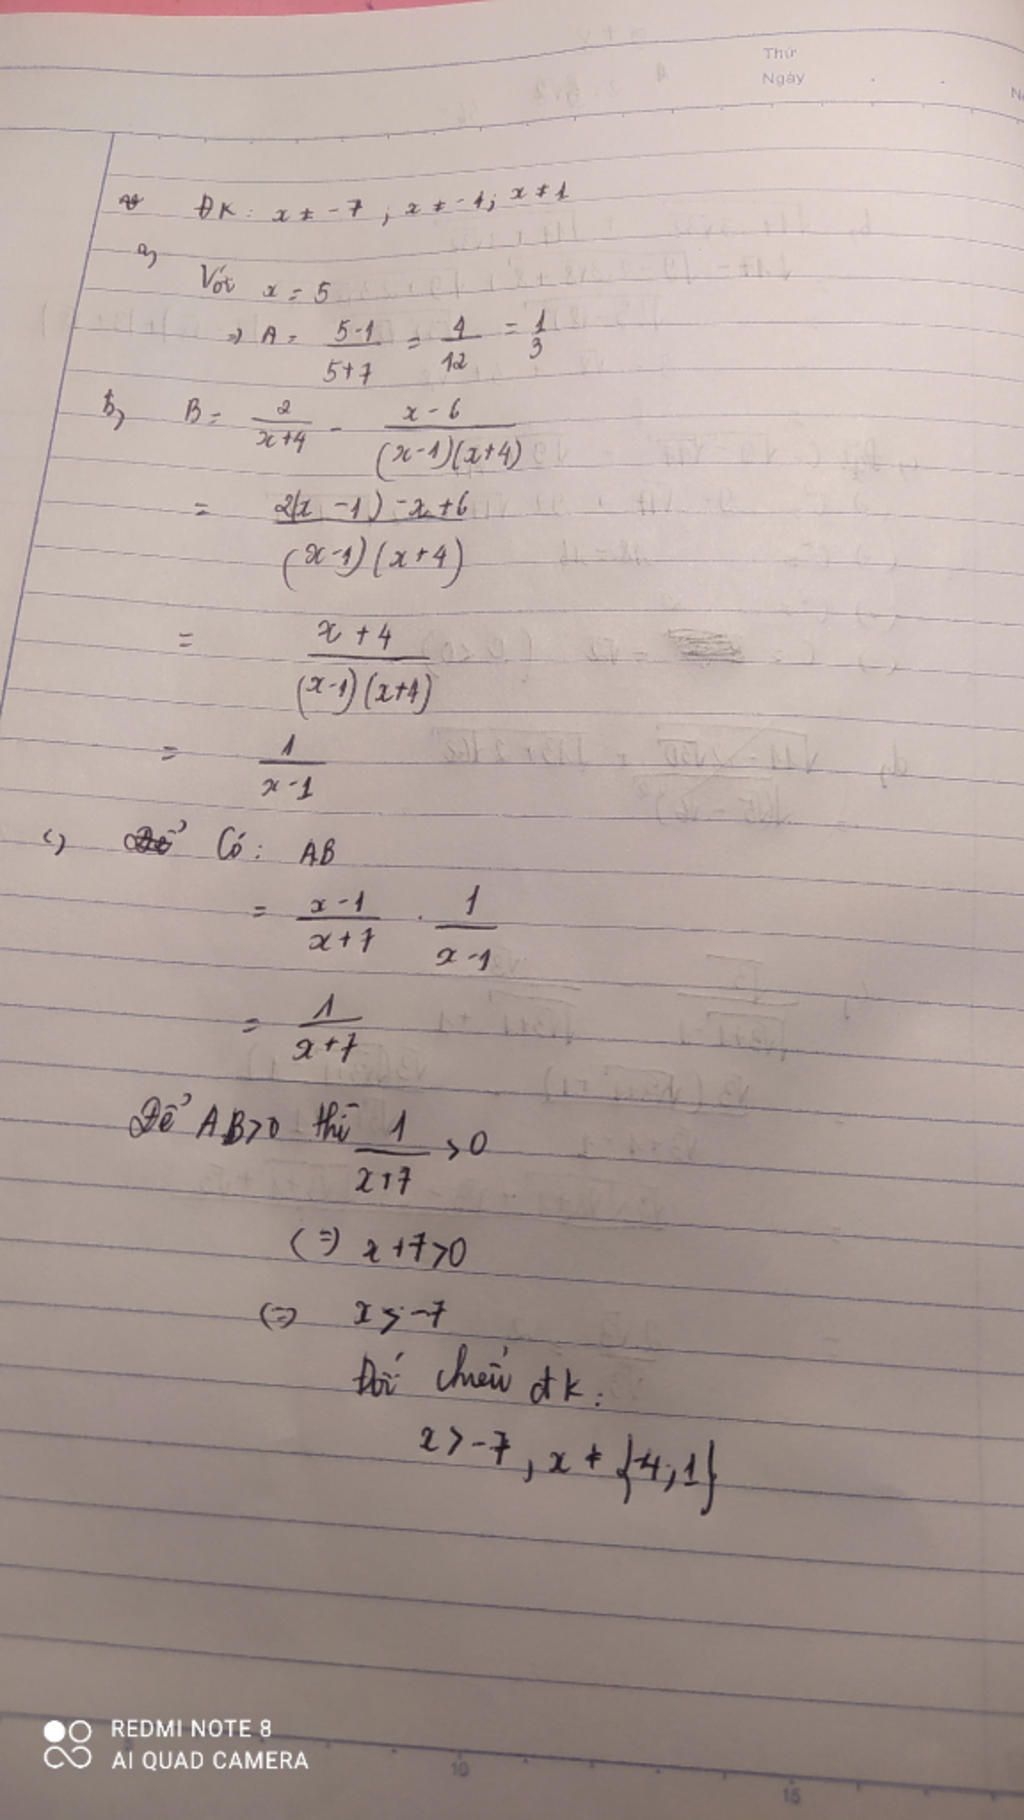 Thứ
Ngày
ĐK: x ≠ -7 ; x ≠ -1; x ≠ 1
a,
Với x = 5
=> A = (5-1)/(5+7) = 4/12 = 1/3
b, B = 2/(x+4) - (x-6)/((x-1)(x+4))
= (2(x-1)-x+6)/((x-1)(x+4))
= (x+4)/((x-1)(x+4))
= 1/(x-1)
c) Có: AB
= (x-1)/(x+7) . 1/(x-1)
= 1/(x+7)
Để AB>0 thì 1/(x+7) >0
(=) x+7>0
(=) x>-7
Đối chiếu đk:
x>-7, x ≠ {-4;1}
REDMI NOTE 8
AI QUAD CAMERA
10
15